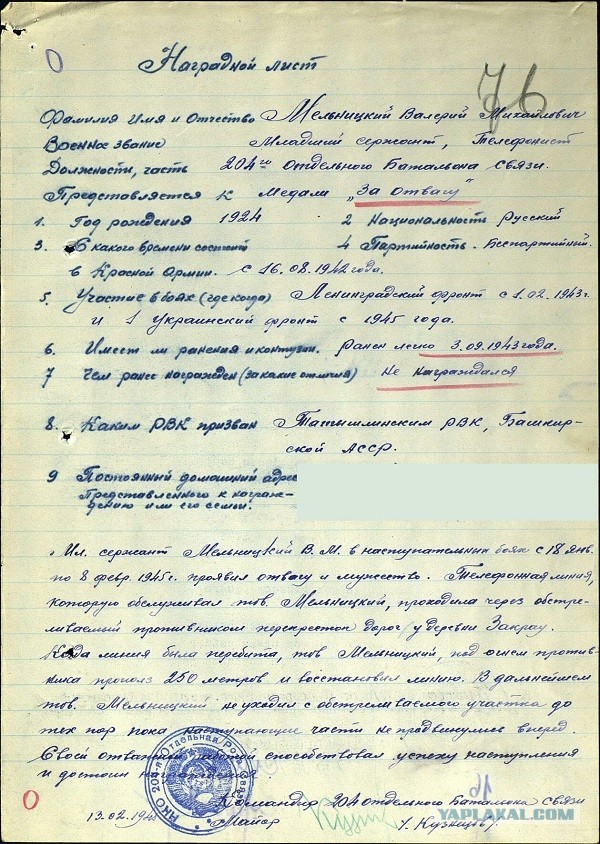 0
76
Наградной лист
Фамилия Имя и Отчество Мельницкий Валерий Михайлович
Военное звание Младший сержант, Телефонист
Должность, часть 204го Отдельного Батальона Связи.
Представляется к Медали „За отвагу"
1. Год рождения 1924 2 Национальность Русский
3. С какого времени состоит 4 Партийность. Беспартийный.
в Красной Армии. с 16.08.1942 года.
5. Участие в боях (где когда) Ленинградский фронт с 1.02.1943г.
и 1 Украинский фронт с 1945 года.
6. Имеет ли ранения и контузии. Ранен легко 3.09.1943 года.
7 Чем ранее награжден (за какие отличия) Не награждался
8. Каким РВК призван Татышлинским РВК, Башкир-
ской АССР.
9 Постоянный домашний адрес
Представленного к награж-
дению или его семьи.
Мл. сержант Мельницкий В.М. в наступательных боях с 18 янв.
по 8 февр. 1945г. проявил отвагу и мужество. Телефонная линия,
которую обслуживал тов. Мельницкий, проходила через обстре-
ливаемый противником перекресток дорог у деревни Закрау.
Когда линия была перебита, тов Мельницкий, под огнем против-
ника прополз 250 метров и восстановил линию. В дальнейшем
тов. Мельницкий не уходил с обстреливаемого участка до
тех пор пока наступающие части не продвинулись вперед.
Своей отважной работой способствовал успеху наступления
и достоин
Командир 204 отдельного Батальона Связи
13.02.1945 Майор / Кузнецов /.
16
0
YAPLAKAL.COM